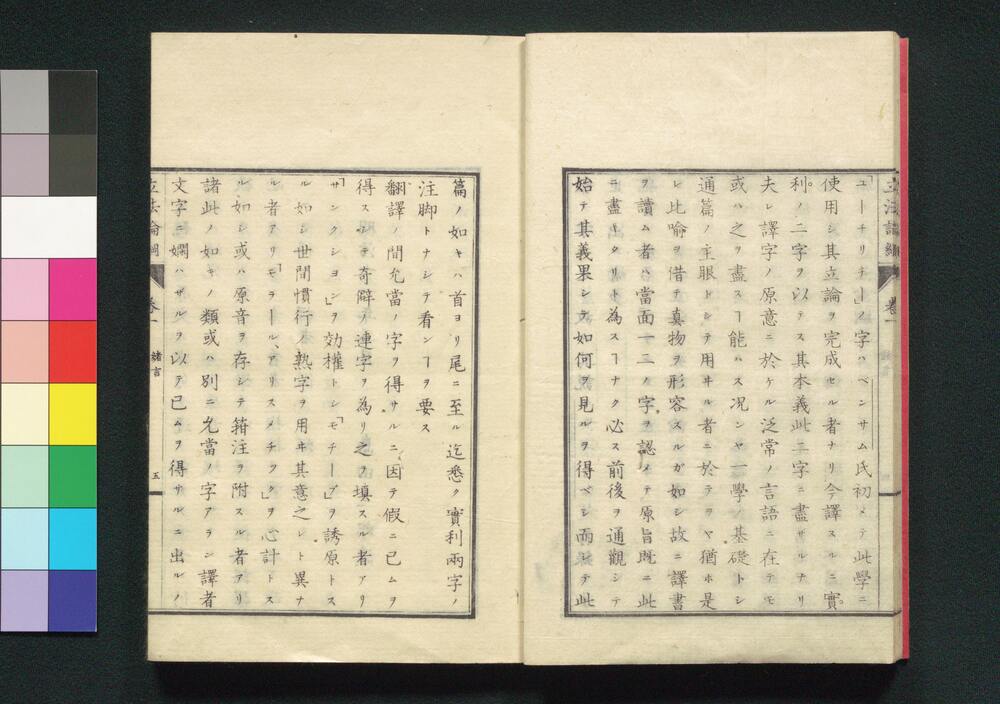 立法論綱
卷一
「ユーチリチー」ノ字ハベンサム氏初メテ此學ニ
使用シ其立論ヲ完成セル者ナリ今譯スルニ實
利ノ二字ヲ以テス其本義此二字ニ盡サルナリ
夫レ譯字ノ原意ニ於ケル泛常ノ言語ニ在テモ
或ハ之ヲ盡スヿ能ハス况ンヤ一學ノ基礎トシ
通篇ノ主眼トシテ用ヰル者ニ於テヲヤ猶ホ是
レ比喻ヲ借テ真物ヲ形容スルガ如シ故ニ譯書
ヲ讀ム者ハ當面一二ノ字ヲ認メテ原旨既ニ此
ニ盡キタリト為スヿナク必ス前後ヲ通觀シテ
始テ其義果シテ如何ヲ見ルヲ得ベシ而シテ此
篇ノ如キハ首ヨリ尾ニ至ル迄悉ク實利兩字ノ
注脚トナシテ看ンヿヲ要ス
翻譯ノ間允當ノ字ヲ得サルニ因テ假ニ已ムヲ
得スシテ奇僻ノ連字ヲ為リ之ヲ填スル者アリ
「サンクシヨン」ヲ効權トシ「モチーブ」ヲ誘原トス
ル如シ世間慣行ノ熟字ヲ用ヰ其意之レト異ナ
ル者アリ「モラール、アリスメチック」ヲ心計トス
ル如シ或ハ原音ヲ存シテ箝注ヲ附スル者アリ
諸此ノ如キノ類或ハ別ニ允當ノ字アラン譯者
文字ニ嫻ハザルヲ以テ已ムヲ得サルニ出ルノ
立法論綱
卷一
緒言
五